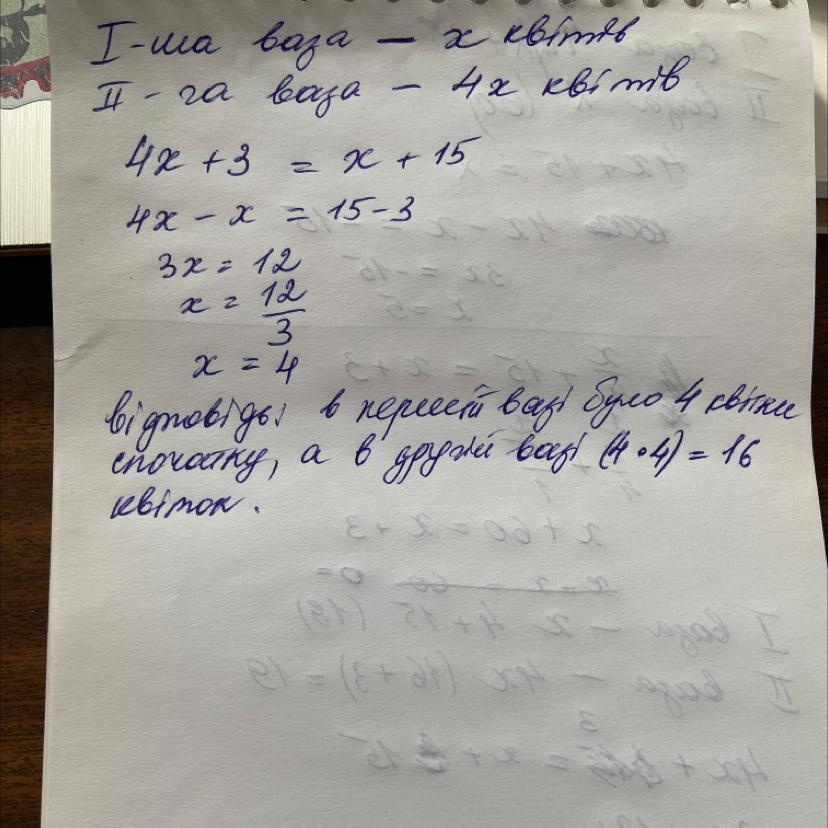 I-ша ваза — x квітів
II-га ваза — 4x квітів
4x + 3 = x + 15
4x - x = 15 - 3
3x = 12
x = 12/3
x = 4
Відповідь: в першій вазі було 4 квітки
спочатку, а в другій вазі (4•4) = 16
квіток.